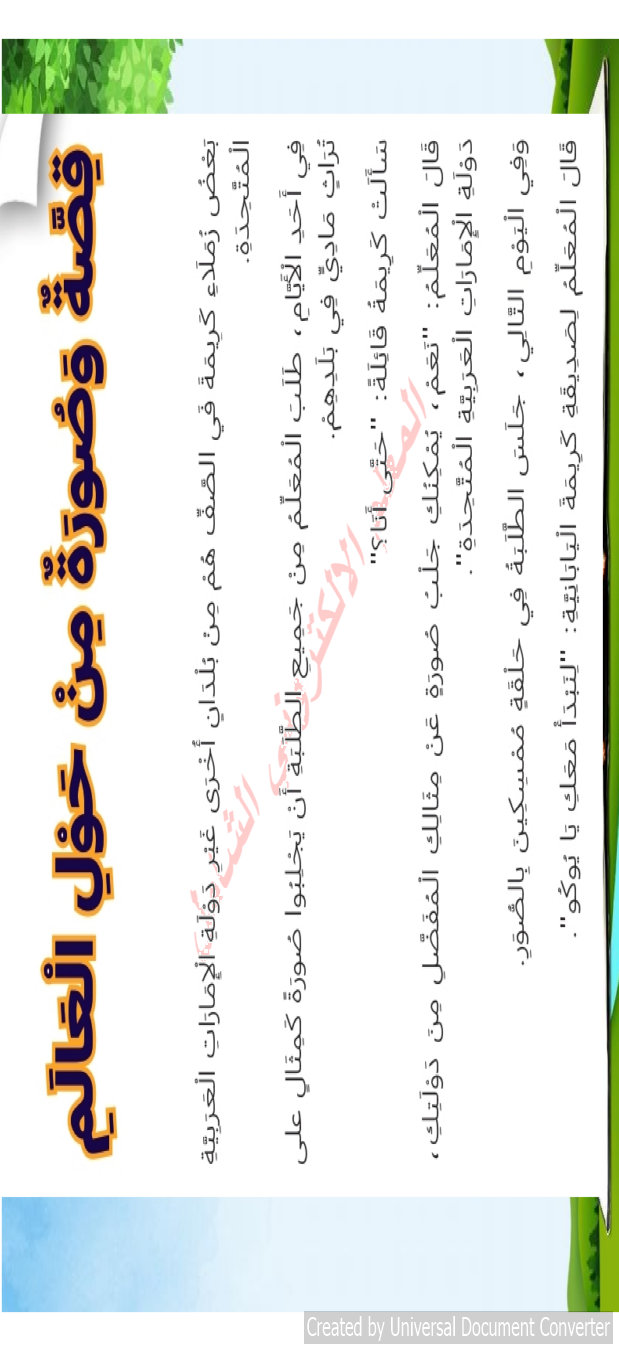 قِصَّةٌ وَصُورَةٌ مِنْ حَوْلِ الْعَالَمِ
بَعْضُ زُمَلَاءِ كَرِيمَة فِي الصَّفِّ هُمْ مِنْ بُلْدَانٍ أُخْرَى غَيْرِ دَوْلَةِ الْإِمَارَاتِ الْعَرَبِيَّةِ
الْمُتَّحِدَةِ.
فِي أَحَدِ الْأَيَّامِ، طَلَبَ الْمُعَلِّمُ مِنْ جَمِيعِ الطَّلَبَةِ أَن يَجْلِبُوا صُورَةً كَمِثَالٍ على
تُرَاثٍ مَادِيٍّ فِي بَلَدِهِمْ.
سَأَلَتْ كَرِيمَةُ قَائِلَةً: "حَتَّى أَنَا؟"
قَالَ الْمُعَلِّمُ: "نَعَمْ، يُمْكِنُكِ جَلْبُ صُورَةٍ عَنْ مِثَالِكِ الْمُفَضَّلِ مِنَ دَوْلَتِكِ،
دَوْلَةِ الْإِمَارَاتِ الْعَرَبِيَّةِ الْمُتَّحِدَةِ".
وَفِي الْيَوْمِ التَّالِي، جَلَسَ الطَّلَبَةُ فِي حَلْقَةٍ مُمْسِكِينَ بِالصُّوَرِ.
قَالَ الْمُعَلِّمُ لِصَدِيقَةِ كَرِيمَةَ الْيَابَانِيَّةِ: "لِنَبْدَأْ مَعَكِ يَا يُوكُو".
المعلم الالكتروني الشامل
Created by Universal Document Converter